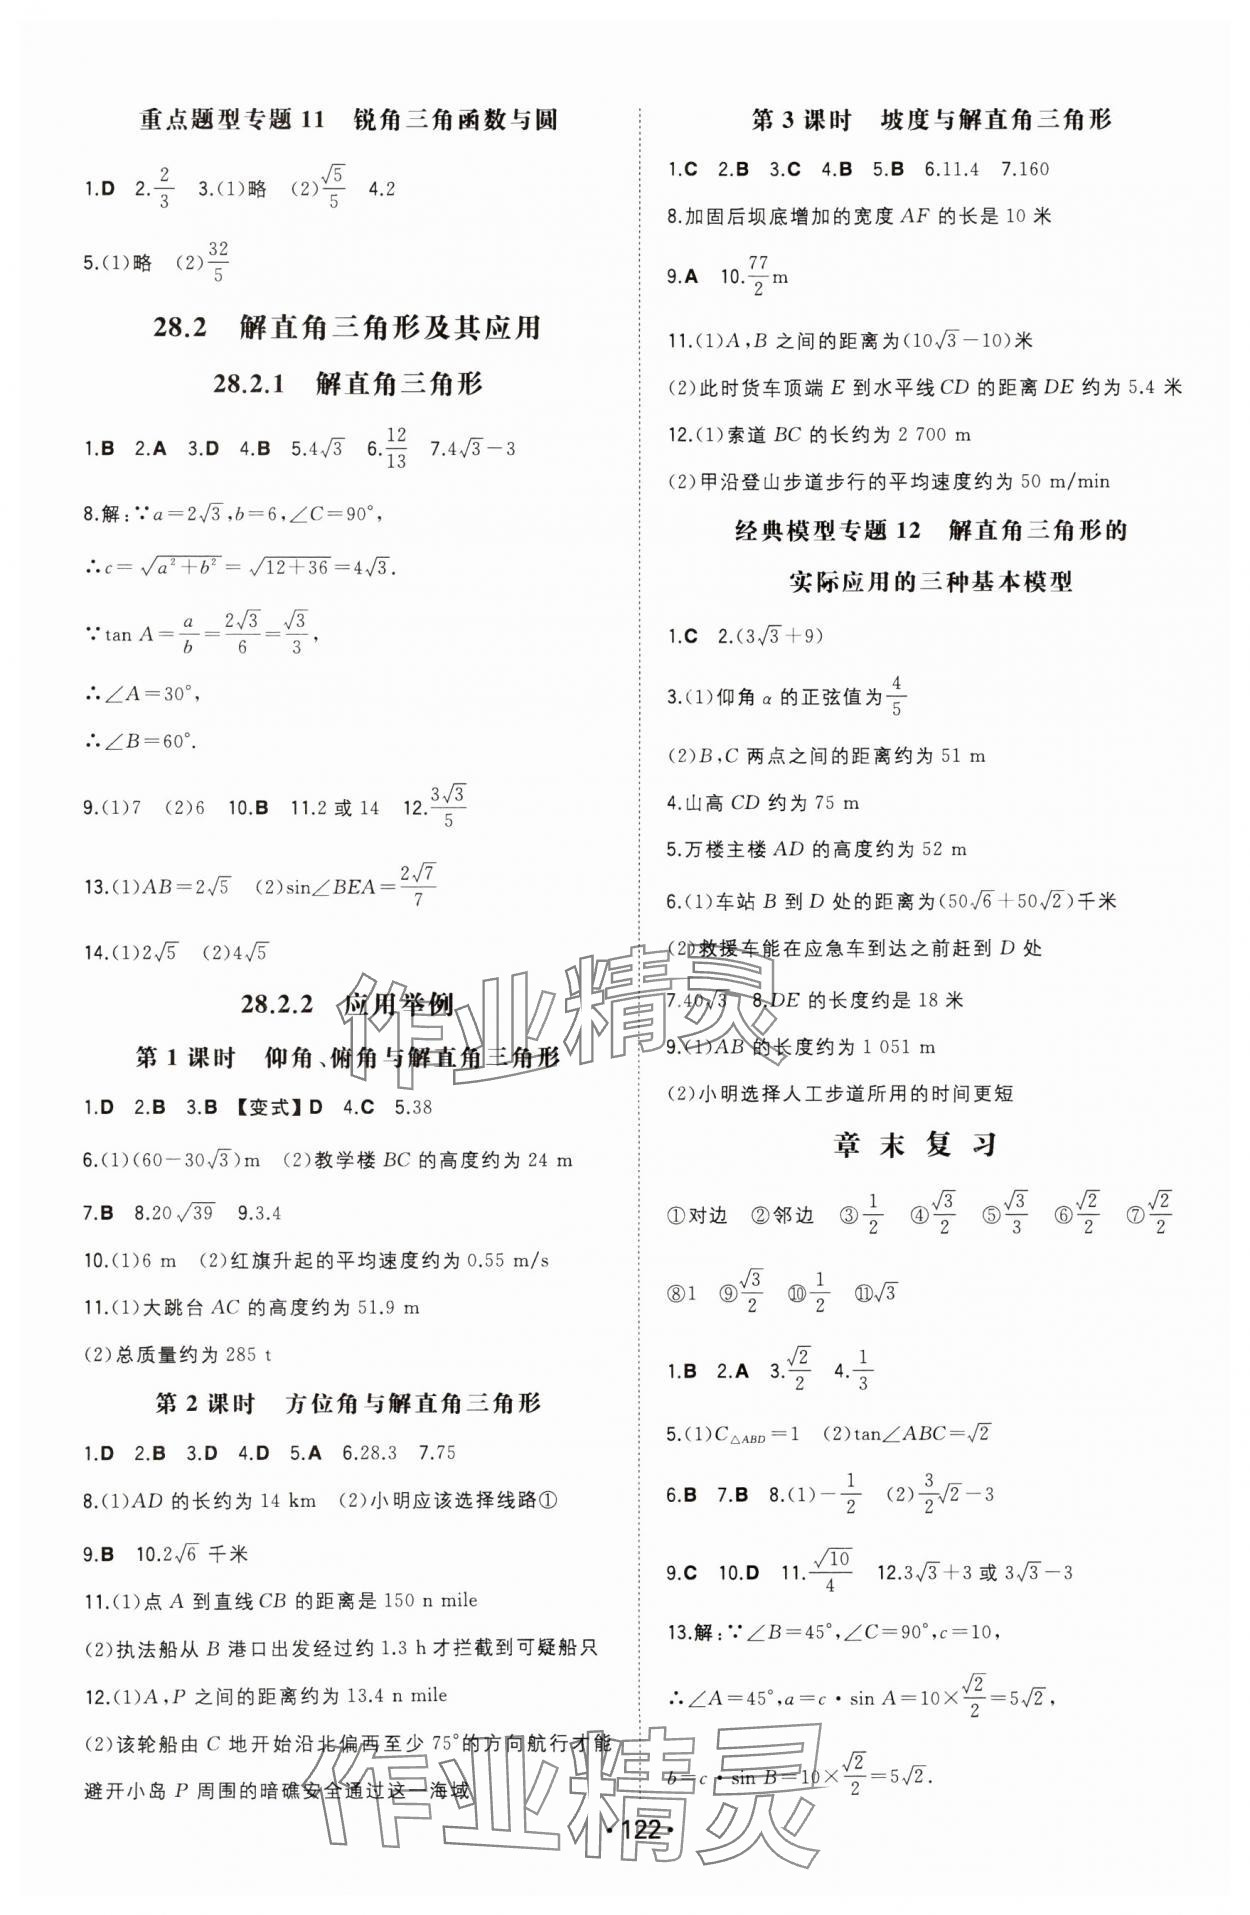 重点题型专题11 锐角三角函数与圆
1.D 2.2/3 3.(1)略 (2)√5/5 4.2
5.(1)略 (2)32/5
28.2 解直角三角形及其应用
28.2.1 解直角三角形
1.B 2.A 3.D 4.B 5.4√3 6.12/13 7.4√3-3
8.解:∵a=2√3,b=6,∠C=90°,
∴c=√(a²+b²)=√(12+36)=4√3.
∵tan A=a/b=2√3/6=√3/3,
∴∠A=30°,
∴∠B=60°.
9.(1)7 (2)6 10.B 11.2或14 12.3√3/5
13.(1)AB=2√5 (2)sin∠BEA=2√7/7
14.(1)2√5 (2)4√5
28.2.2 应用举例
第1课时 仰角、俯角与解直角三角形
1.D 2.B 3.B 【变式】D 4.C 5.38
6.(1)(60-30√3)m (2)教学楼BC的高度约为24 m
7.B 8.20√39 9.3.4
10.(1)6 m (2)红旗升起的平均速度约为0.55 m/s
11.(1)大跳台AC的高度约为51.9 m
(2)总质量约为285 t
第2课时 方位角与解直角三角形
1.D 2.B 3.D 4.D 5.A 6.28.3 7.75
8.(1)AD的长约为14 km (2)小明应该选择线路①
9.B 10.2√6千米
11.(1)点A到直线CB的距离是150 n mile
(2)执法船从B港口出发经过约1.3 h才拦截到可疑船只
12.(1)A,P之间的距离约为13.4 n mile
(2)该轮船由C地开始沿北偏西至少75°的方向航行才能
避开小岛P周围的暗礁安全通过这一海域
第3课时 坡度与解直角三角形
1.C 2.B 3.C 4.B 5.B 6.11.4 7.160
8.加固后坝底增加的宽度AF的长是10米
9.A 10.77/2 m
11.(1)A,B之间的距离为(10√3-10)米
(2)此时货车顶端E到水平线CD的距离DE约为5.4米
12.(1)索道BC的长约为2 700 m
(2)甲沿登山步道步行的平均速度约为50 m/min
经典模型专题12 解直角三角形的
实际应用的三种基本模型
1.C 2.(3√3+9)
3.(1)仰角α的正弦值为4/5
(2)B,C两点之间的距离约为51 m
4.山高CD约为75 m
5.万楼主楼AD的高度约为52 m
6.(1)车站B到D处的距离为(50√6+50√2)千米
(2)救援车能在应急车到达之前赶到D处
7.40√3 8.DE的长度约是18米
9.(1)AB的长度约为1 051 m
(2)小明选择人工步道所用的时间更短
章末复习
①对边 ②邻边 ③1/2 ④√3/2 ⑤√3/3 ⑥√2/2 ⑦√2/2
⑧1 ⑨√3/2 ⑩1/2 ⑪√3
1.B 2.A 3.√2/2 4.1/3
5.(1)C△ABD=1 (2)tan∠ABC=√2
6.B 7.B 8.(1)-1/2 (2)3/2√2-3
9.C 10.D 11.√10/4 12.3√3+3或3√3-3
13.解:∵∠B=45°,∠C=90°,c=10,
∴∠A=45°,a=c·sin A=10×√2/2=5√2,
b=c·sin B=10×√2/2=5√2.
·122·
作业精灵
作业精灵